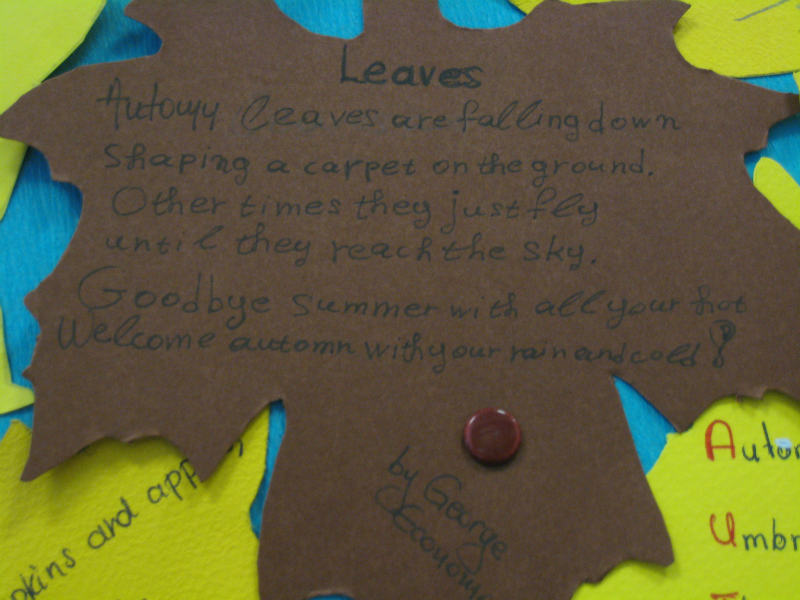 Leaves
Automy leaves are falling down
shaping a carpet on the ground.
Other times they just fly
until they reach the sky.
Goodbye summer with all your hot
Welcome automn with your rain and cold!
by George
Economo
pkins and apples,
Autom
Umbr